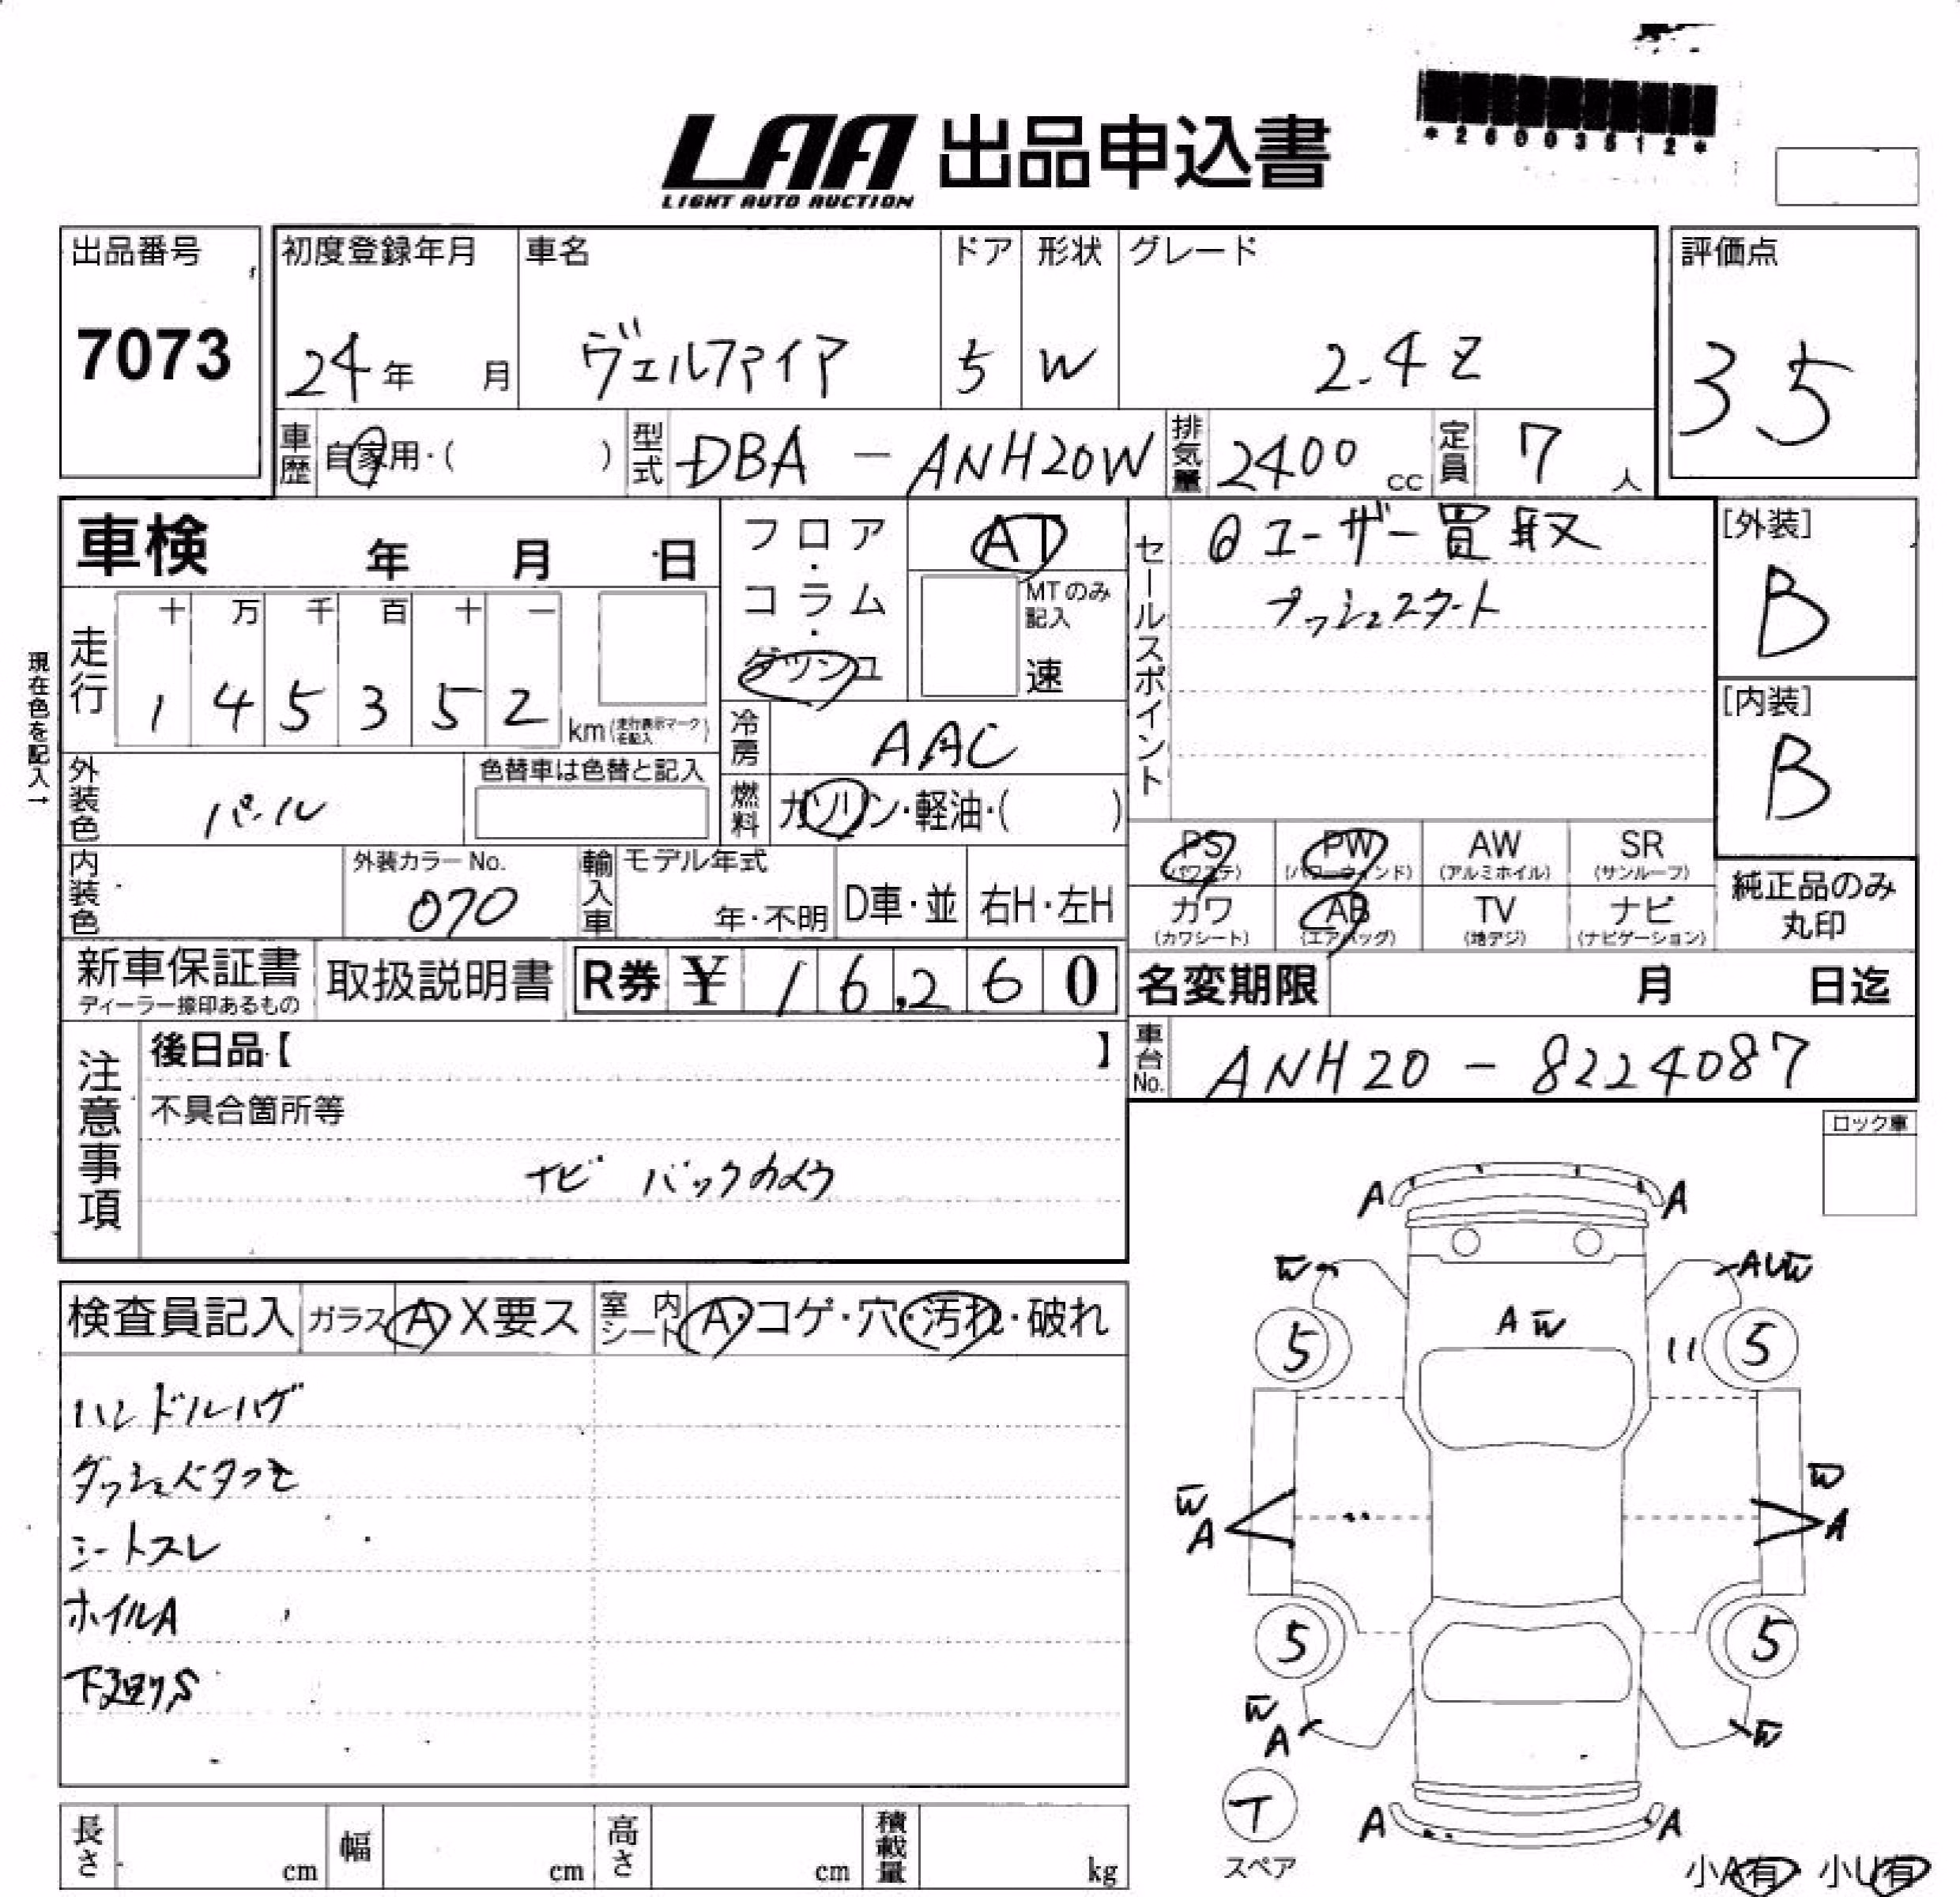 *26003512*
LAA 出品申込書
LIGHT AUTO AUCTION
出品番号
7073
初度登録年月
24年 月
車名
ヴェルファイア
ドア
5
形状
W
グレード
2.4 Z
評価点
3 5
車歴
自家用・( )
型式
DBA - ANH20W
排気量
2400 cc
定員
7 人
車検 年 月 日
フロア・コラム・ダッシュ
AT
MTのみ記入
速
セールスポイント
ユーザー買取
プッシュスタート
[外装]
B
[内装]
B
現在色を記入→
走行
十 万 千 百 十 一
1 4 5 3 5 2
km(走行表示マークを記入)
冷房
AAC
外装色
パール
色替車は色替と記入
燃料
ガソリン・軽油・( )
内装色
外装カラーNo.
070
輸入車
モデル年式
年・不明
D車・並
右H・左H
PS
(パワステ)
PW
(パワーウィンド)
AW
(アルミホイル)
SR
(サンルーフ)
カワ
(カワシート)
AB
(エアバッグ)
TV
(地デジ)
ナビ
(ナビゲーション)
純正品のみ
丸印
新車保証書
ディーラー捺印あるもの
取扱説明書
R券 ¥ 16,260
名変期限 月 日迄
車台No.
ANH20 - 8224087
注意事項
後日品【 】
不具合箇所等
ナビ バックカメラ
ロック車
検査員記入
ガラス A X要ス
室内シート A・コゲ・穴・汚れ・破れ
ハンドルハゲ
ダッシュベタつき
シートスレ
ホイルA
下廻りS
A A
W AUW
A W
5 5
W W
A A
5 5
W W
A
T
スペア
A A
小A有 小U有
長さ cm
幅 cm
高さ cm
積載量 kg